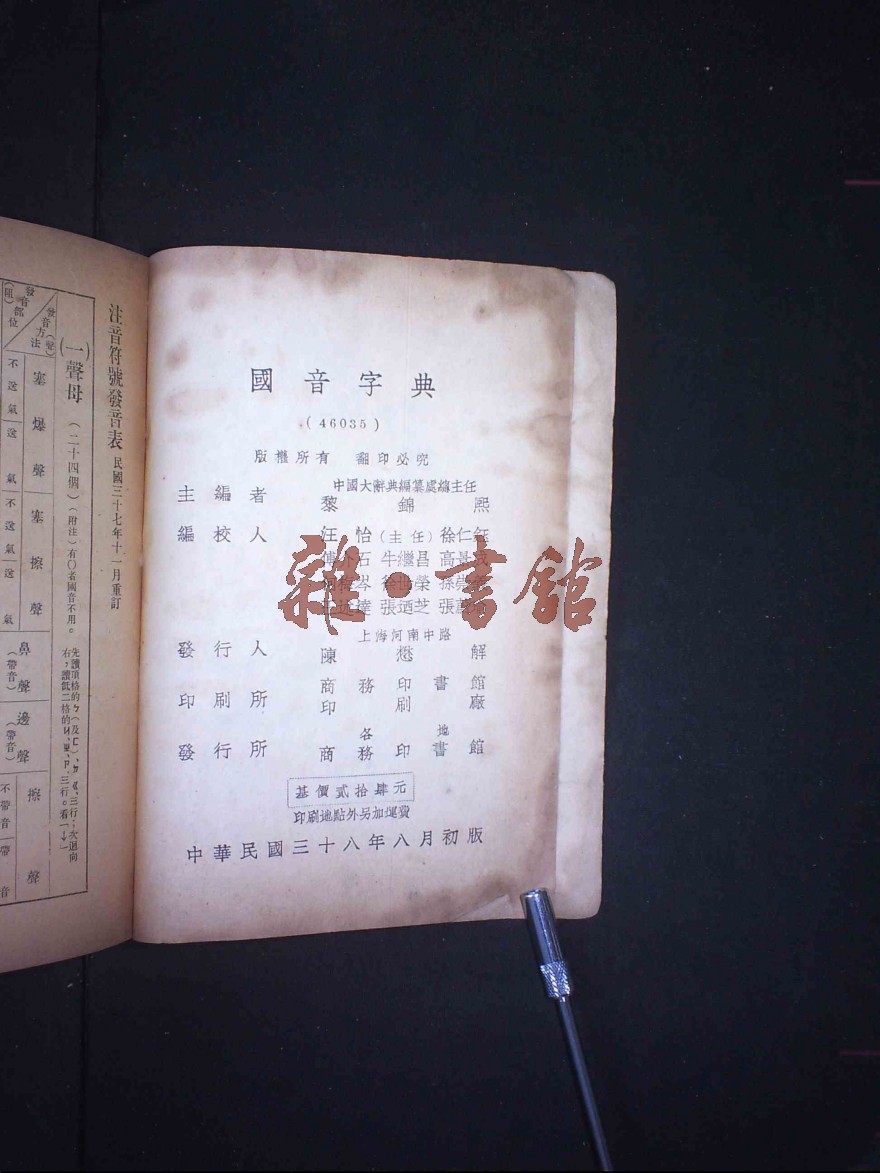 國音字典
(46035)
版權所有 翻印必究
中國大辭典編纂處總主任
主編者 黎錦熙
編校人 汪怡(主任)徐仁鈺
傅介石 牛繼昌 高景成
岑 徐世榮 孫崇
達 張迺芝 張
上海河南中路
發行人 陳懋解
商務印書館
印刷所 印刷廠
各地
發行所 商務印書館
基價貳拾肆元
印刷地點外另加運費
中華民國三十八年八月初版
雜·書館
注音符號發音表 民國三十七年十一月重訂
(一)聲母 (二十四個) (附注)有〇者國音不用。
先讀頂格的ㄅ(及ㄈ),ㄉ,ㄍ,三行;次退向
右,讀低二格的ㄐ,ㄓ,ㄗ,三行。看(↓→)
發音方法(聲)
發音部位(阻)
塞爆聲 塞擦聲 鼻聲(帶音) 邊聲(帶音) 擦聲
不送氣 送氣 不送氣 送氣 不帶音 帶音